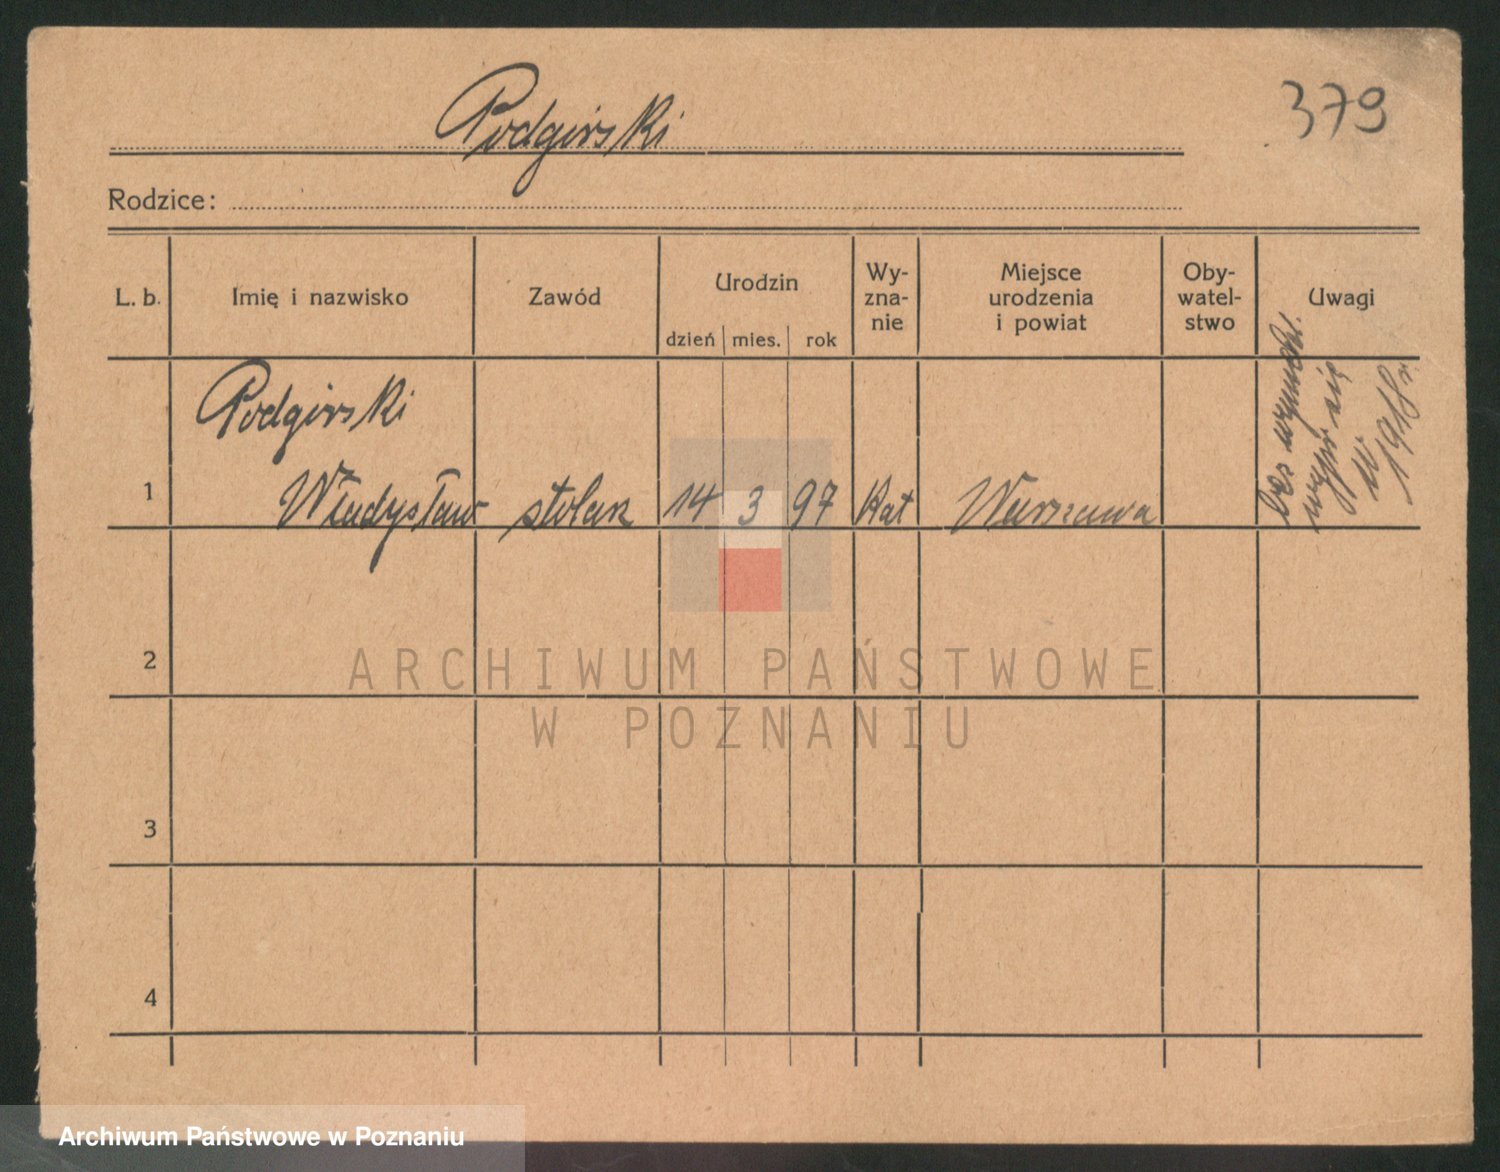 379
Podgórski
Rodzice:
L. b.
Imię i nazwisko
Zawód
Urodzin
dzień mies. rok
Wy-
zna-
nie
Miejsce
urodzenia
i powiat
Oby-
watel-
stwo
Uwagi
Podgórski
1 Władysław stolarz 14 3 97 Kat Warszawa
bez
się
w
1918 r.
2
3
4
ARCHIWUM PAŃSTWOWE
W POZNANIU
Archiwum Państwowe w Poznaniu